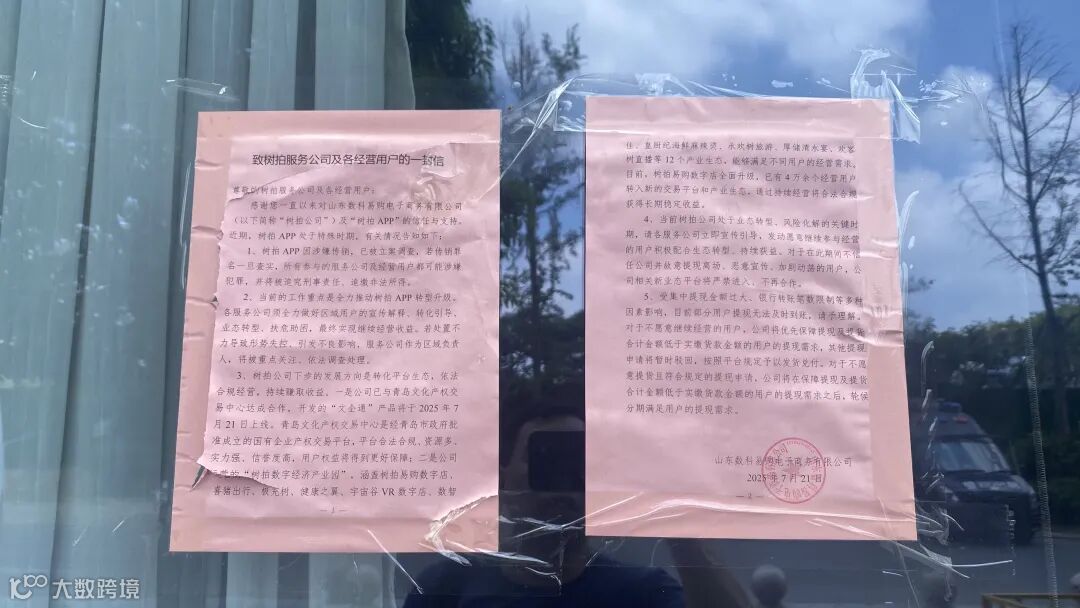 致树拍服务公司及各经营用户的一封信
尊敬的树拍服务公司及各经营用户：
感谢您一直以来对山东数科易购电子商务有限公司
（以下简称“树拍公司”）及“树拍APP”的信任与支持。
近期，树拍APP处于特殊时期，有关情况告知如下：
1、树拍APP因涉嫌传销，已被立案调查，若传销罪
名一旦查实，所有参与的服务公司及经营用户都可能涉嫌
犯罪，并将被追究刑事责任、追缴非法所得。
2、当前的工作重点是全力推动树拍APP转型升级。
各服务公司须全力做好区域用户的宣传解释、转化引导、
业态转型、扶危助困，最终实现继续经营收益。若处置不
力导致形势失控，引发不良影响，服务公司作为区域负责
人，将被重点关注、依法调查处理。
3、树拍公司下步的发展方向是转化平台生态，依法
合规经营，持续赚取收益。一是公司已与青岛文化产权交
易中心达成合作，开发的“文企通”产品将于2025年7
月21日上线。青岛文化产权交易中心是经青岛市政府批
准成立的国有企业产权交易平台，平台合法合规、资源多、
实力强、信誉度高，用户权益将得到更好保障；二是公司
运营的“树拍数字经济产业园”，涵盖树拍易购数字店、
喜猪出行、极充树、健康之翼、宇宙谷VR数字店、数智
— 1 —
佳、皇厨纪海鲜麻辣烫、永欢树旅游、厚储清水宴、欢客
树直播等12个产业生态，能够满足不同用户的经营需求。
目前，树拍易购数字店全面升级，已有4万余个经营用户
转入新的交易平台和产业生态，通过持续经营将合法合规
获得长期稳定收益。
4、当前树拍公司处于生态转型、风险化解的关键时
期，请各服务公司立即宣传引导，发动愿意继续参与经营
的用户积极配合生态转型、持续获益。对于在此期间不信
任公司并故意提现离场、恶意宣传、加剧动荡的用户，公
司相关新业态平台将严禁进入、不再合作。
5、受集中提现金额过大、银行转账笔数限制等多种
因素影响，目前部分用户提现无法及时到账，请予理解。
对于不愿意继续经营的用户，公司将优先保障提现及提货
合计金额低于实缴货款金额的用户的提现需求，其他提现
申请将暂时驳回，按照平台规定予以发货兑付。对于不愿
意提货且符合规定的提现申请，公司将在保障提现及提货
合计金额低于实缴货款金额的用户的提现需求之后，轮候
分期满足用户的提现需求。
山东数科易购电子商务有限公司
2025年7月21日
— 2 —
大数跨境